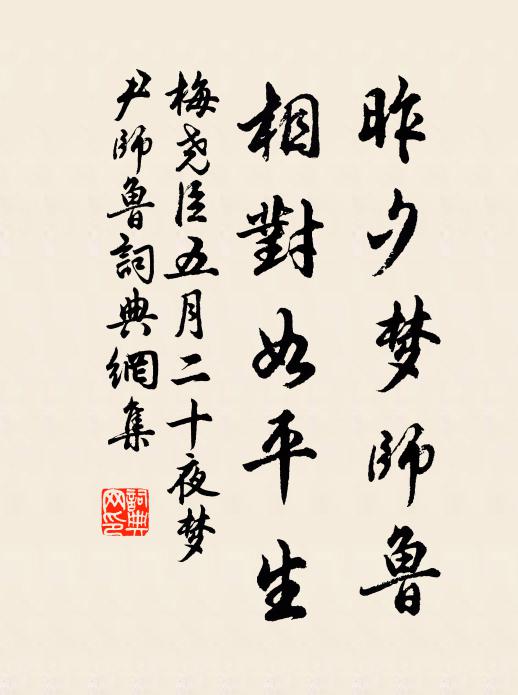 昨夕梦师鲁
相對如平生
梅尧臣五月二十夜梦
尹师鲁詞典網集
詞典
网印